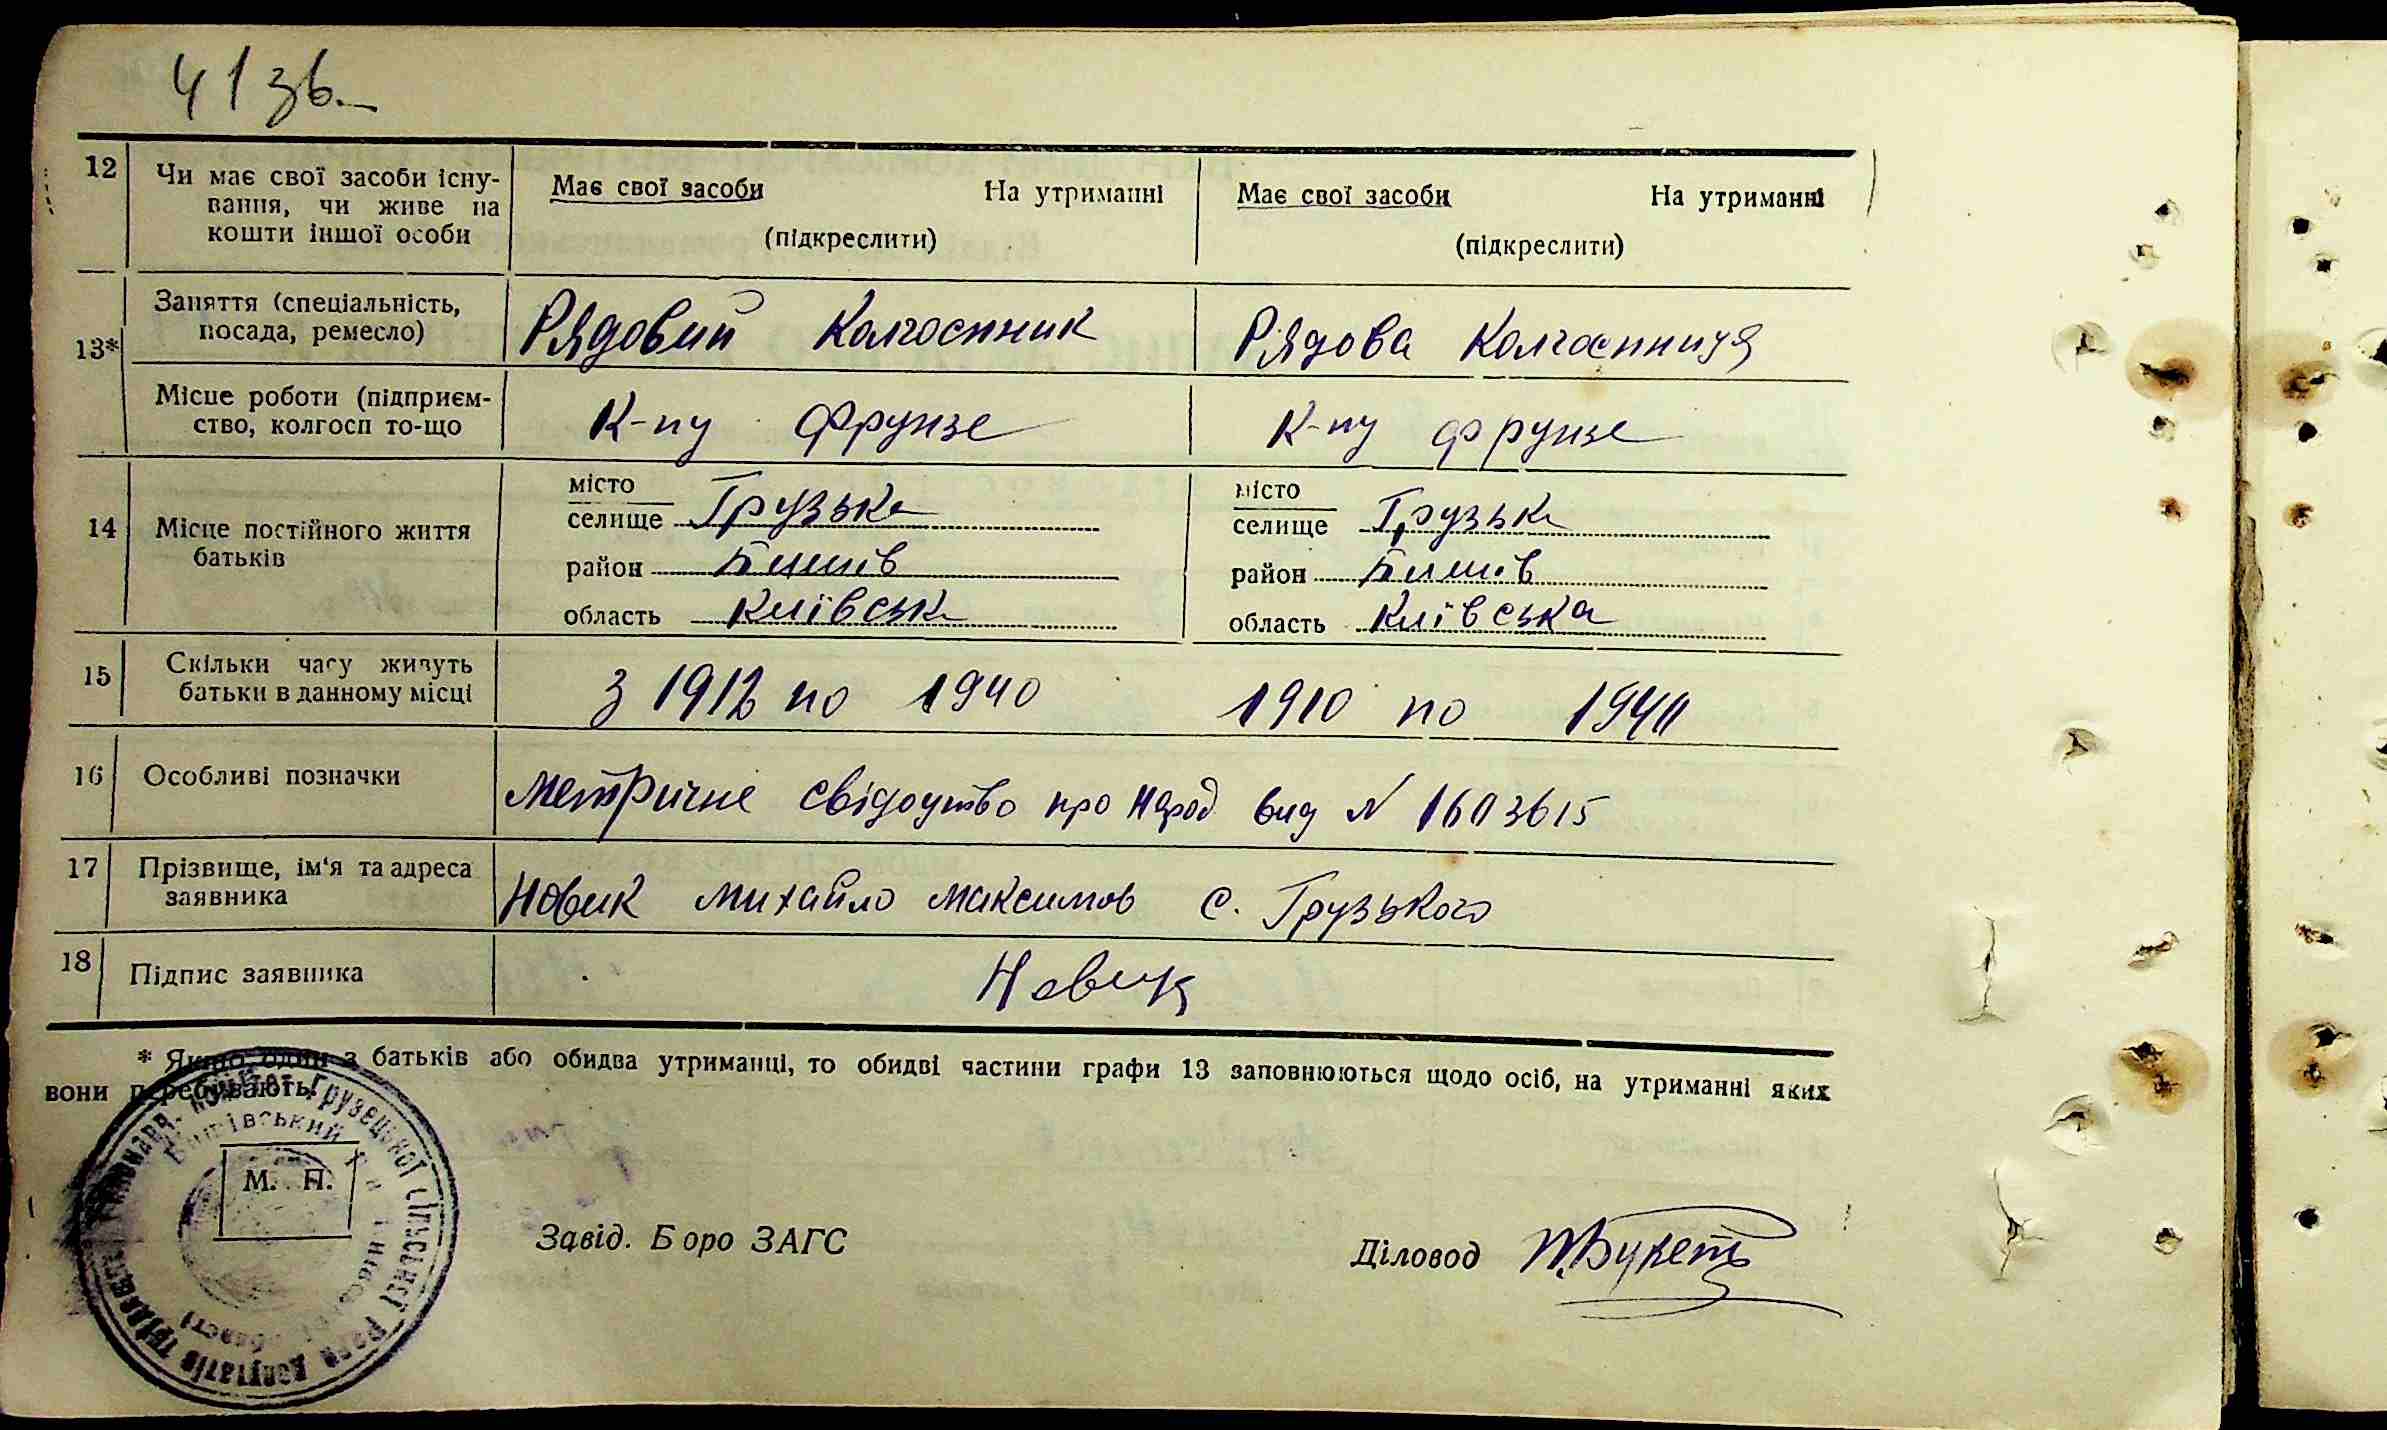 41 зв.
12 Чи має свої засоби існу-
вання, чи живе на
кошти іншої особи
Має свої засоби На утриманні
(підкреслити)
Має свої засоби На утриманні
(підкреслити)
13* Заняття (спеціальність,
посада, ремесло)
Рядовий Колгоспник
Рядова Колгоспниця
Місце роботи (підприєм-
ство, колгосп то-що
К-пу Фрунзе
К-пу Фрунзе
14 Місце постійного життя
батьків
місто
селище Грузьке
район Бишів
область Київська
місто
селище Грузьке
район Бишів
область Київська
15 Скільки часу живуть
батьки в данному місці
З 1912 по 1940
1910 по 1940
16 Особливі позначки
Метричне свідоцтво про народ вид № 1603615
17 Прізвище, ім'я та адреса
заявника
Новик Михайло Максимов с. Грузького
18 Підпис заявника
Новик
* Якщо один з батьків або обидва утриманці, то обидві частини графи 13 заповнюються щодо осіб, на утриманні яких
вони перебувають.
М. П.
Грузецької сільської Ради депутатів трудящих
Бишівський р-н Київської області
Завід. Боро ЗАГС
Діловод